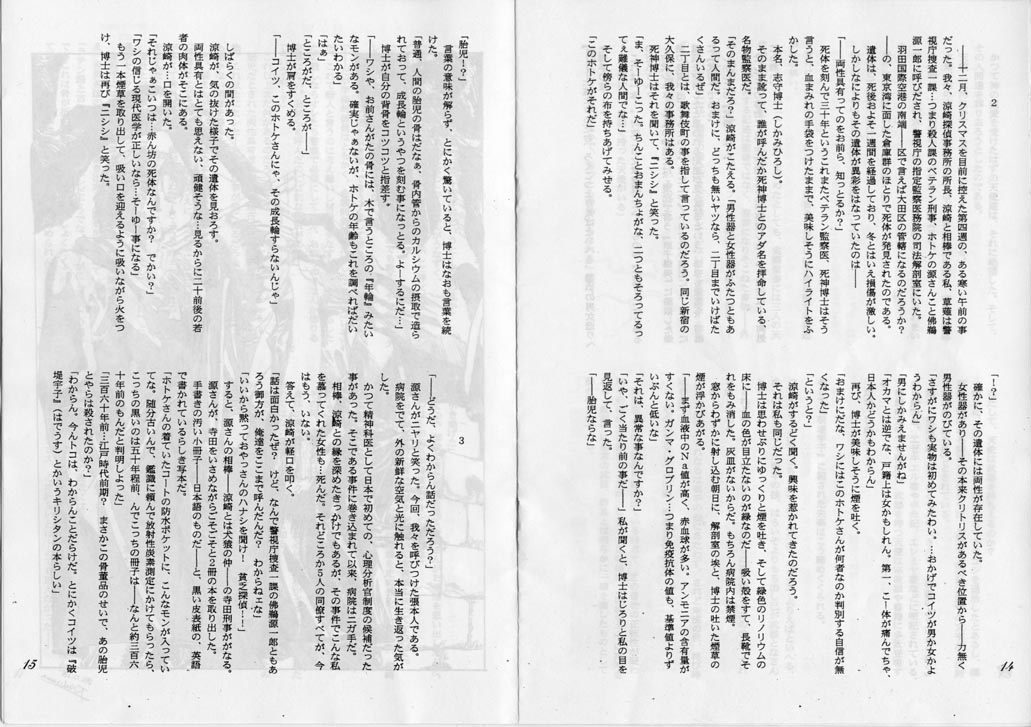 2
――十二月、クリスマスを目前に控えた第四週の、ある寒い午前の事
だった。我々、涼崎探偵事務所の所長、涼崎と相棒である私、草薙は警
視庁捜査一課…つまり殺人課のベテラン刑事、ホトケの源さんこと佛鵜
源一郎に呼びだされ、警視庁の指定監察医務院の司法解剖室にいた。
羽田国際空港の南端――区で言えば大田区の管轄になるのだろうか?
――の、東京湾に面した倉庫群のほとりで死体が発見されたのである。
遺体は、死後およそ一週間を経過しており、冬とはいえ損傷が激しい。
しかしなによりもその遺体が異彩をはなっていたのは――
「――両性具有ってのをお前ら、知っとるか?」
死体を刻んで三十年というこれまたベテラン監察医、死神博士はそう
言うと、血まみれの手袋をつけたままで、美味しそうにハイライトをふ
かした。
本名、志守博士(しかみひろし)。
そのまま読って、誰が呼んだか死神博士とのアダ名を拝命している、
名物監察医だ。
「そのまんまだろ?」涼崎がこたえる。「男性器と女性器がふたつともあ
るって人間だ。おまけに、どっちも無いヤツなら、二丁目までいけばた
くさんいるぜ」
二丁目とは、歌舞伎町の事を指して言っているのだろう。同じ新宿の
大久保に、我々の事務所はある。
死神博士はそれを聞いて、『ニシシ』と笑った。
「ま、そーゆーこった。ちんことおまんちょがな、二つともそろってるっ
てぇ難儀な人間でな…」
そして傍らの布を持ちあげてみせる。
「このホトケがそれだ」
「!?」
確かに、その遺体には両性が存在していた。
女性器があり――その本来クリトリスがあるべき位置から――力無く
男性器がのびている。
「さすがにワシも実物は初めてみたわい。…おかげでコイツが男か女かよ
うわからん」
「男にしかみえませんがね」
「オカマとは逆でな、戸籍上は女かもしれん。第一、こー体が痛んでちゃ、
日本人かどうかもわからん」
再び、博士が美味しそうに煙を吐く。
「おまけにだな、ワシにはこのホトケさんが何者なのか判別する自信が無
くなった」
「というと?」
涼崎がするどく聞く。興味を惹かれてきたのだろう。
それは私も同じだった。
博士は思わせぶりにゆっくりと煙を吐き、そして緑色のリノリウムの
床に――血の色が目立たないのが緑なのだ――吸い殻をすて、長靴でそ
れをもみ消した。灰皿がないからだ。もちろん病院内は禁煙。
窓からわずかに射し込む朝日に、解剖室の埃と、博士の吐いた煙草の
煙が浮かびあがる。
「――まず血液中のNa値が高く、赤血球が多い。アンモニアの含有量が
すくない。ガンマ・グロブリン…つまり免疫抗体の値も、基準値よりず
いぶんと低いな」
「それは、異常な事なんですか?」
「いや、ごく当たり前の事だ――」私が聞くと、博士はじろりと私の目を
見返して、言った。
「――胎児ならな」
14
「胎児!?」
言葉の意味が解らず、とにかく驚いていると、博士はなおも言葉を続
けた。
「普通、人間の胎児の骨はだなぁ、骨内管からのカルシウムの摂取で造ら
れておって、成長輪というやつを刻む事になっとる。よーするにだ…」
博士が自分の背骨をコツコツと指差す。
「――ワシや、お前さんがたの骨には、木で言うところの『年輪』みたい
なモンがある。確実じゃぁないが、ホトケの年齢もこれを調べればだい
たいわかる」
「はぁ」
「ところがだ、ところが――」
博士が肩をすくめる。
「――コイツ、このホトケさんにゃ、その成長輪すらないんじゃ」

しばらくの間があった。
涼崎が、気の抜けた様子でその遺体を見おろす。
両性具有とはとても思えない、頑健そうな…見るからに二十前後の若
者の肉体がそこにある。
涼崎が…口を開いた。
「それじゃぁこいつは…赤ん坊の死体なんですか? でかい?」
「ワシの信じる現代医学が正しいなら…そーゆー事になる」
もう一本煙草を取り出して、吸い口を迎えるように吸いながら火をつ
け、博士は再び『ニシシ』と笑った。
3
「――どうだ、よくわからん話だっただろう?」
源さんがニヤリと笑った。今回、我々を呼びつけた張本人である。
病院をでて、外の新鮮な空気と光に触れると、本当に生き返った気が
した。
かつて精神科医として日本で初めての、心理分析官制度の候補だった
事があった。そこである事件に巻き込まれて以来、病院はニガ手だ。
相棒、涼崎との縁を深めたきっかけでもあるが、その事件でこんな私
を慕ってくれた女性も…死んだ。それどころか5人の同僚すべてが、今
はもう、いない。
答えて、涼崎が軽口を叩く。
「話は面白かったぜ? けど、なんで警視庁捜査一課の佛鵜源一郎ともあ
ろう御方が、俺達をここまで呼んだんだ? わからねェな」
「いいから黙っておやっさんのハナシを聞け! 貧乏探偵!!」
すると、源さんの相棒――涼崎とは犬猿の仲――の寺田刑事がなる。
源さんが、寺田をいさめながらごそごそと2冊の本を取り出した。
手書きの汚い小冊子――日本語のものだ――と、黒い皮表紙の、英語
で書かれているらしき写本だ。
「ホトケさんの着ていたコートの防水ポケットに、こんなモンが入ってい
てな。随分古いんで、鑑識に頼んで放射性炭素測定にかけてもらったら、
こっちの黒いのは五十年程前、んでこっちの冊子は――なんと約三百六
十年前のもんだと判明しよった」
「三百六十年前…江戸時代前期? まさかこの骨董品のせいで、あの胎児
とやらは殺されたのか?」
「わからん。今んトコは、わからんことだらけだ。とにかくコイツは『破
堤宇子』(はでうす)とかいうキリシタンの本らしい」
15